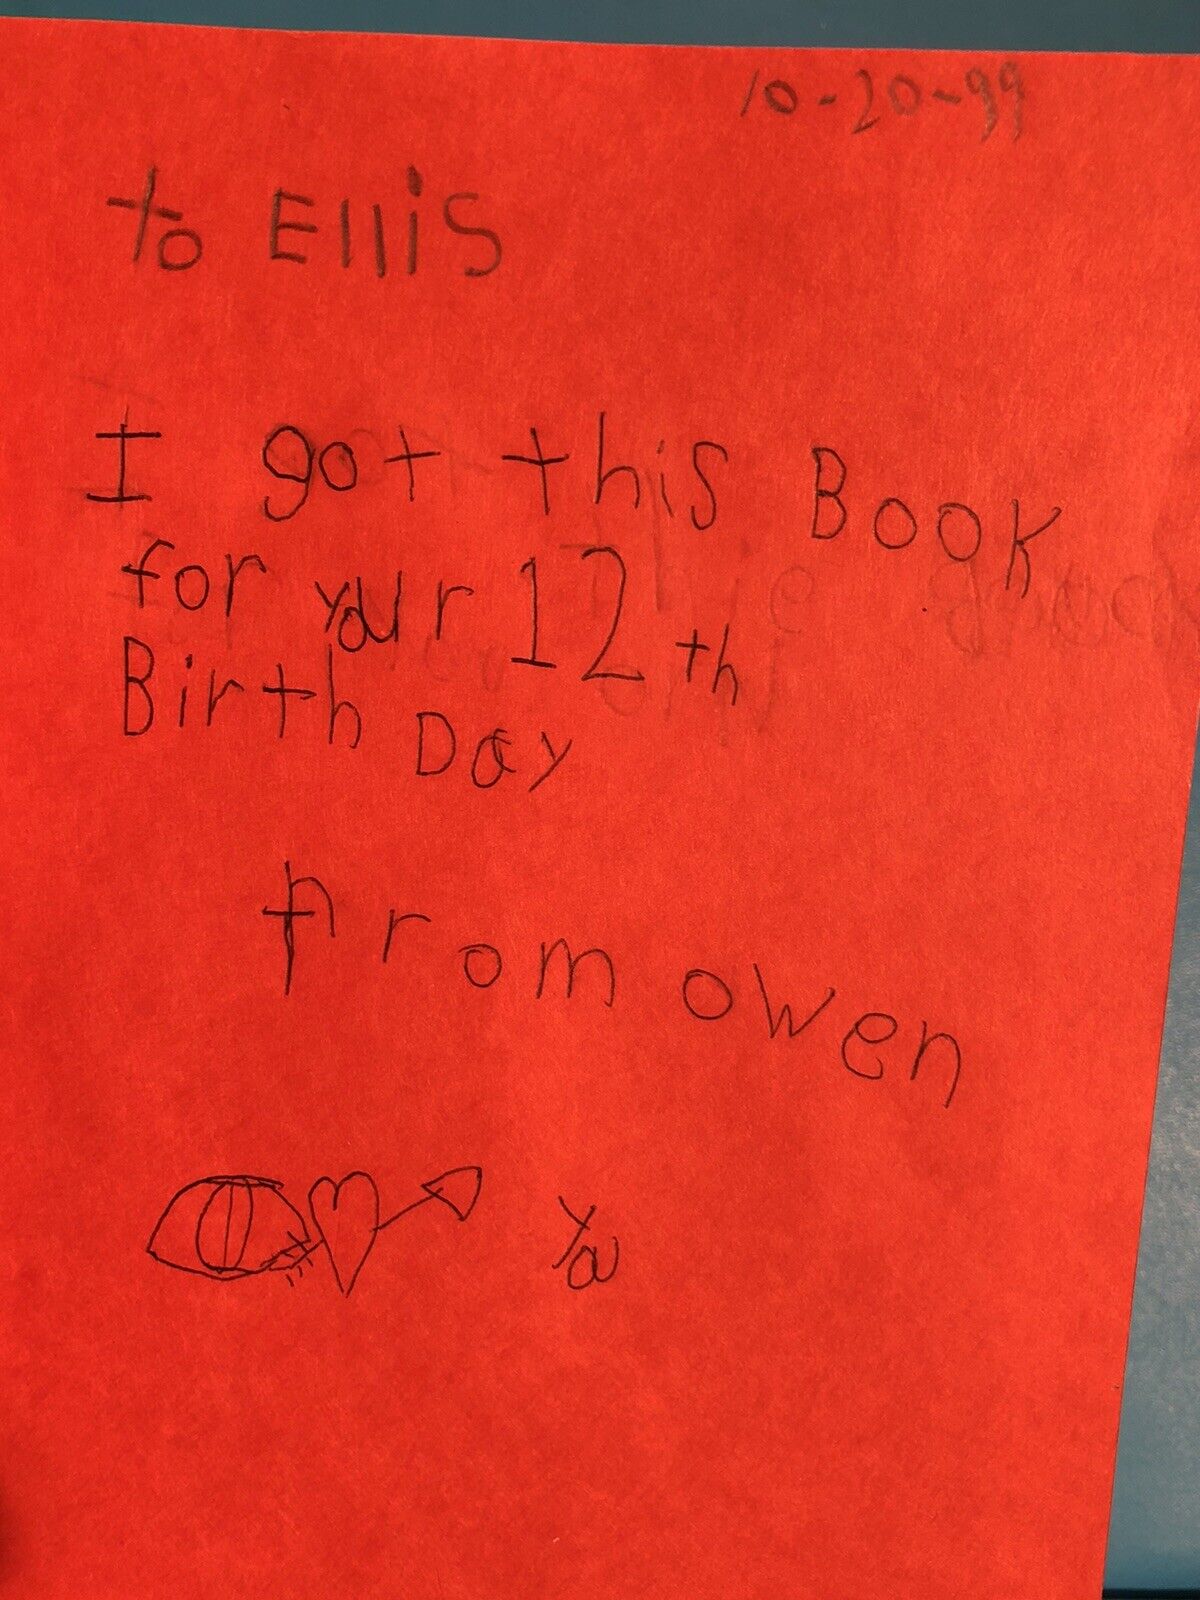 10-20-99
to Ellis
I got this Book
for your 12th
BirthDay
from owen
You